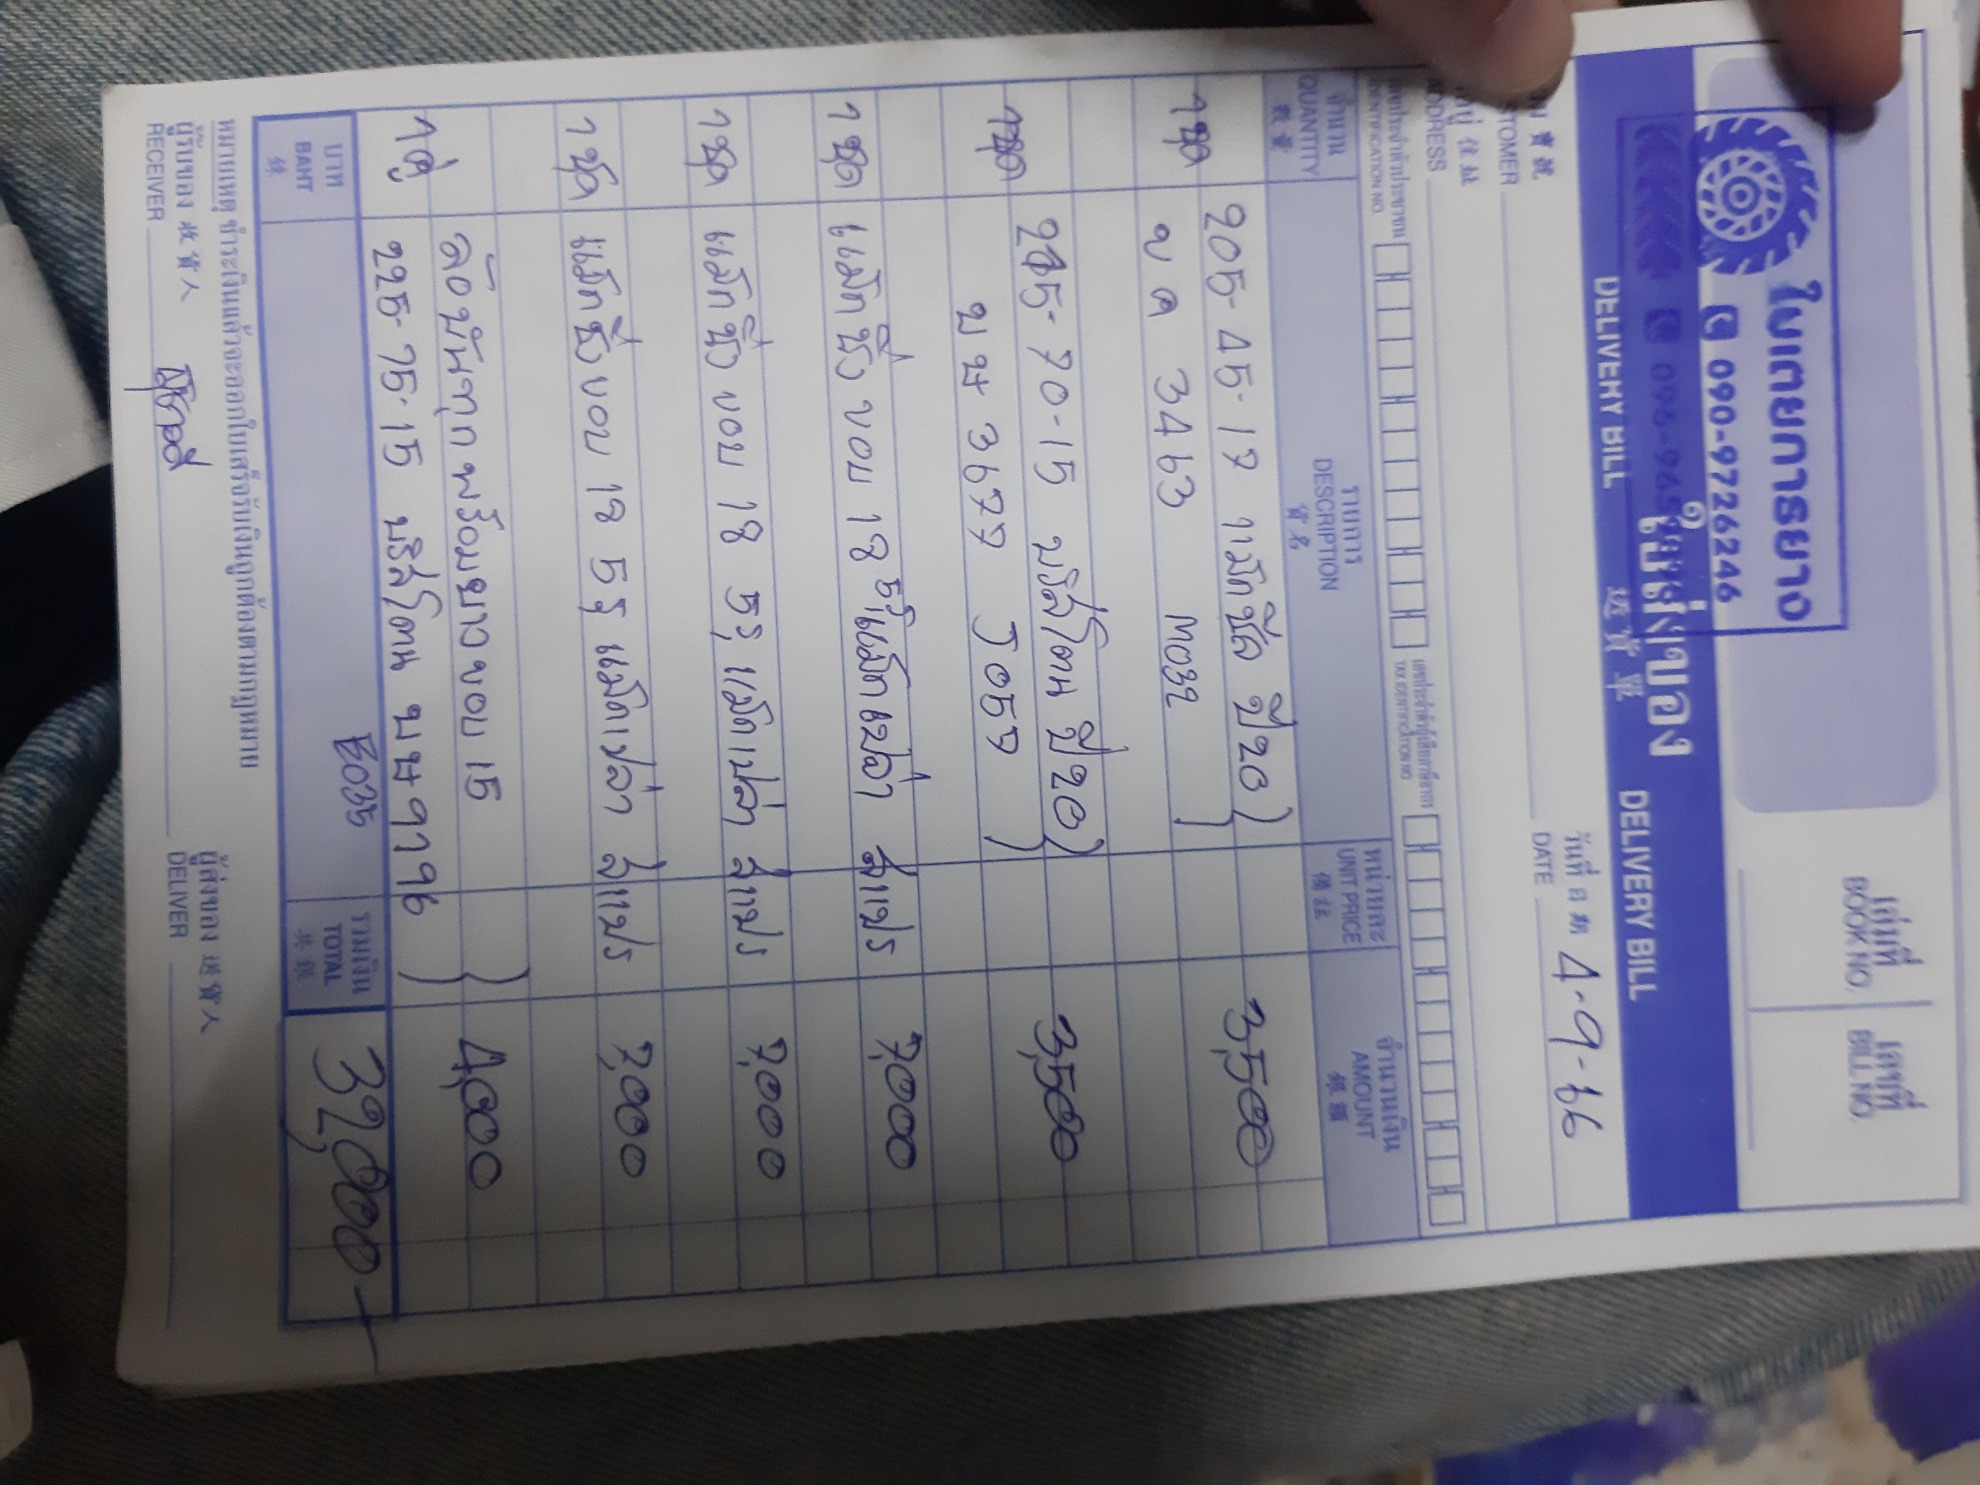 ใบเตยการยาง
090-9726246
เล่มที่
BOOK NO.
เลขที่
BILL NO.
ใบส่งของ
DELIVERY BILL 送貨單 DELIVERY BILL
วันที่ 日期
DATE 4-9-66
ADDRESS
จำนวน
QUANTITY
數量
รายการ
DESCRIPTION
貨名
หน่วยละ
UNIT PRICE
จำนวนเงิน
AMOUNT
銀額
1ชุด 205-45-17 แม็กซีส ปี20) 3,500
ขค 3463 M032)
1ชุด 215-70-15 บริสโตน ปี20) 3,500
บษ 3677 J057)
1ชุด แม็กซิ่ง ขอบ 18 5รู แม็กเปล่า สีแปร 7,000
1ชุด แม็กซิ่ง ขอบ 18 5รู แม็กเปล่า สีแปร 7,000
1ชุด แม็กซิ่ง ขอบ 18 5รู แม็กเปล่า สีแปร 7,000
1คู่ ล้อบันทุกพร้อมยางขอบ 15 ) 4,000
225-75-15 บริสโตน บษ 9796 )
บาท
BAHT
銖
E035
รวมเงิน
TOTAL
共銀
32,000-
หมายเหตุ ชำระเงินแล้วจะออกใบเสร็จรับเงินถูกต้องตามกฎหมาย
ผู้รับของ 收貨人
RECEIVER
ผู้ส่งของ 送貨人
DELIVER